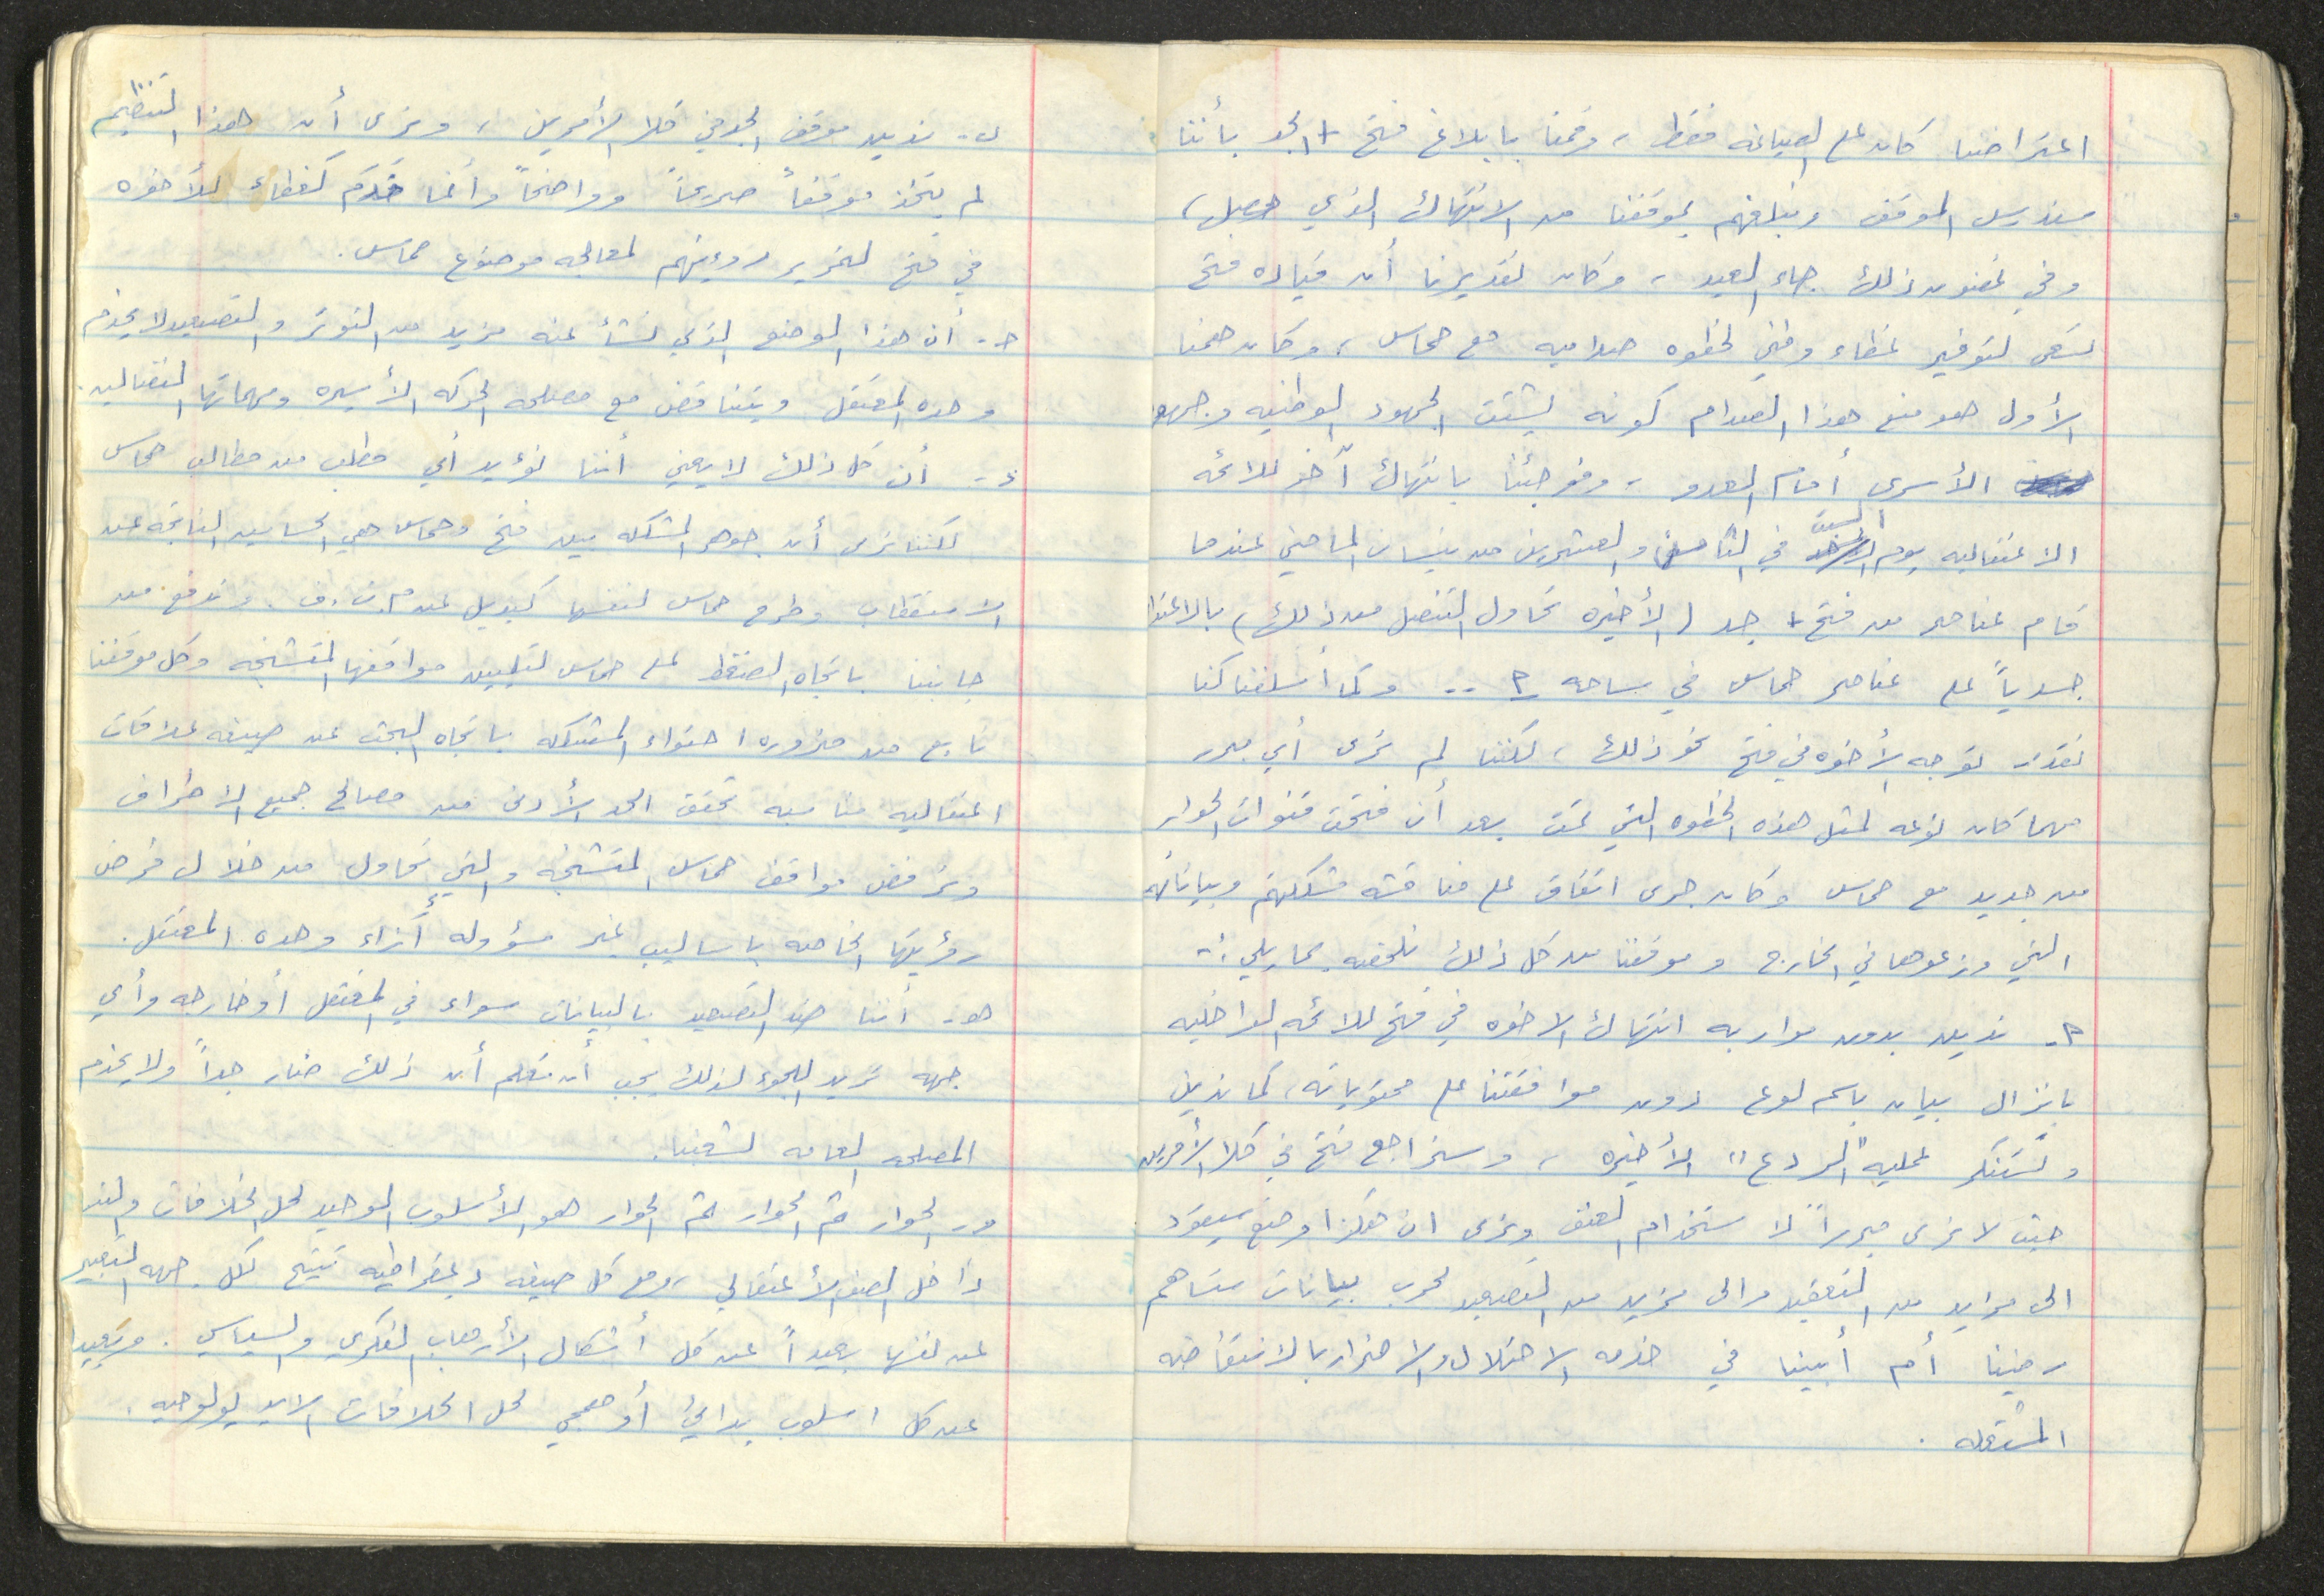 اعتراضنا كان على الصياغه فقط، وقمنا بابلاغ فتح + الجد بأننا
سندرس الموقف ونبلغهم بموقفنا من الانتهاك الذي حصل،
وفي غضون ذلك جاء العيد، وكان تقديرنا أن قياده فتح
تسعى لتوفير غطاء وطني لخطوه صداميه مع حماس، وكان همنا
الأول هو منع هذا الصدام كونه يشتت الجهود الوطنيه وجهود
الأسرى أمام العدو، وفوجئنا بانتهاك آخر للائحه
الاعتقاليه يوم السبت في الثامن والعشرين من نيسان الماضي عندما
قام عناصر من فتح + جد (الأخيره تحاول التنصل من ذلك) بالاعتداء
جسدياً على عناصر حماس في ساحه ج .. وكما أسلفنا كنا
نقدر توجه الأخوه في فتح نحو ذلك، لكننا لم نرى أي مبرر
مهما كان نوعه لمثل هذه الخطوه التي تمت بعد أن فتحت قنوات الحوار
من جديد مع حماس وكان جرى اتفاق على مناقشه مشكلتهم وبياناتهم
التي وزعوها في الخارج وموقفنا من كل ذلك نلخصه بما يلي :-
أ- ندين بدون مواربه انتهاك الاخوه في فتح للائحه الداخليه
بانزال بيان باسم لوع دون موافقتنا على محتوياته، كما ندين
ونستنكر عمليه "الردع" الأخيره، وسنراجع فتح في كلا الأمرين
حيث لا نرى مبرراً لاستخدام العنف ونرى ان هكذا وضع سيعود
الى مزيد من التعقيد والى مزيد من التصعيد لحرب بيانات ستساهم
رضينا أم أبينا في خدمه الاحتلال والاضرار بالانتفاضه
المشتعله.
ب- ندين موقف الجد في كلا الأمرين، ونرى أن هذا التنظيم
لم يتخذ موقفاً صريحاً وواضحاً وأنما خدم كغطاء للأخوه
في فتح لتمرير رؤيتهم لمعالجه موضوع حماس.
ج- أن هذا الوضع الذي نشأ عنه مزيد من التوتر والتصعيد لا يخدم
وحده المعتقل ويتناقض مع مصلحه الحركه الأسيره ومهماتها النضاليه.
د- أن كل ذلك لا يعني أننا نؤيد أي مطلب من مطالب حماس
لكننا نرى أن جوهر المشكله بين فتح وحماس هي الحساسيه الناتجه عن
الاستقطاب وطرح حماس لنفسها كبديل عن م.ت.ف. وندفع من
جانبنا باتجاه الضغط على حماس لتليين مواقفها المتشنجه وكل موقفنا
نابع من ضروره احتواء المشكله باتجاه البحث عن صيغه علاقات
اعتقاليه مناسبه تحقق الحد الأدنى من مصالح جميع الاطراف
ونرفض مواقف حماس المتشنجه والتي تحاول من خلال فرض
رؤيتها الخاصه باساليب غير مسؤوله أزاء وحده المعتقل.
هـ- أننا ضد التصعيد بالبيانات سواء في المعتقل أو خارجه وأي
جهه تريد اللجوء لذلك يجب أن تعلم أن ذلك ضار جداً ولا يخدم
المصلحه العامه لشعبنا.
و- الحوار ثم الحوار ثم الحوار هو الأسلوب الوحيد لحل الخلافات
داخل الصف الأعتقالي، ومع كل صيغه ديمقراطيه تتيح لكل جهه التعبير
عن نفسها بعيداً عن كل أشكال الأرهاب الفكري والسياسي. وبعيدا
عن كل اسلوب بدائي أو همجي لحل الخلافات الايديولوجيه.